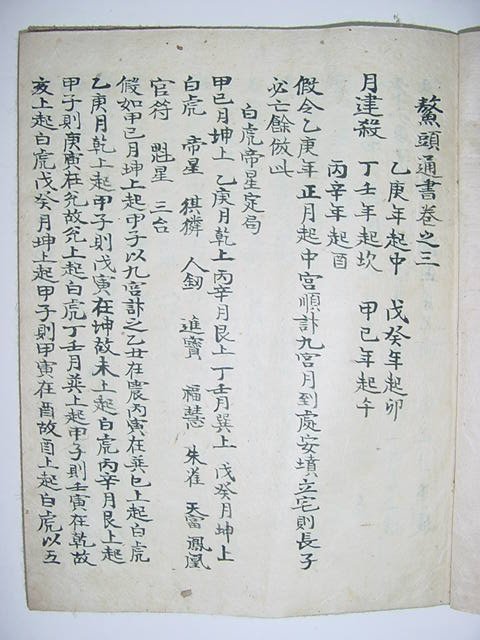 鰲頭通書卷之三
乙庚年起中　戊癸年起卯
月建殺　丁壬年起坎　甲己年起午
丙辛年起酉
假令乙庚年正月起中宮順計九宮月到處安墳立宅則長子
必亡餘倣此
白虎帝星定局
甲己月坤上　乙庚月乾上　丙辛月艮上　丁壬月巽上　戊癸月坤上
白虎　帝星　猉獜　人劒　進寶　福慧　朱雀　天富　鳳凰
官符　魁星　三台
假如甲己月坤上起甲子以九宮計之乙丑在震丙寅在巽巳上起白虎
乙庚月乾上起甲子則戊寅在坤故未上起白虎丙辛月艮上起
甲子則庚寅在兌故兌上起白虎丁壬月巽上起甲子則壬寅在乾故
亥上起白虎戊癸月坤上起甲子則甲寅在酉故酉上起白虎以五